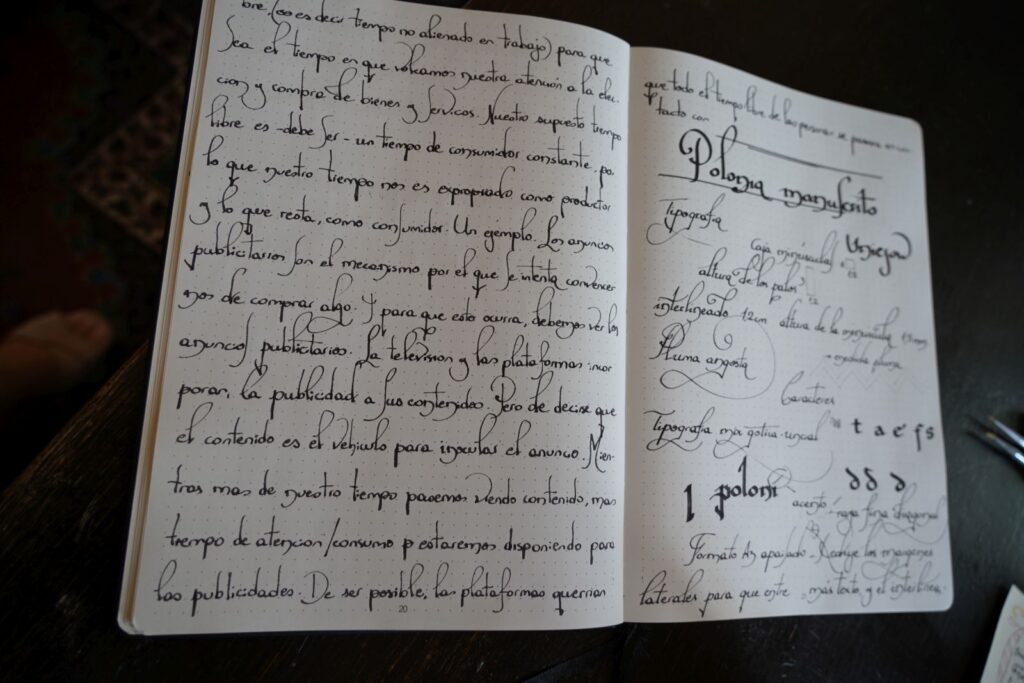 bre, (eso es decir tiempo no alienado en trabajo) para que
sea el tiempo en que volcamos nuestra atención a la elec-
cion y compra de bienes y servicios. Nuestro supuesto tiempo
libre es -debe ser- un tiempo de consumidor constante, por
lo que nuestro tiempo nos es expropiado como productor
y lo que resta, como consumidor. Un ejemplo. Los anuncios
publicitarios son el mecanismo por el que se intenta convencer
nos de comprar algo. Y para que esto ocurra, debemos ver los
anuncios publicitarios. La television y las plataformas incor
poran, la publicidad a sus contenidos. Pero de decirse que
el contenido es el vehiculo para inocular el anuncio. Mien-
tras mas de nuestro tiempo pasemos viendo contenido, mas
tiempo de atencion/consumo estaremos disponiendo para
las publicidades. De ser posible, las plataformas querrian
20
que todo el tiempo libre de las personas se pasara en con
tacto con
Polonia manuscrito
Tipografia
Caja minúscula
altura de los palos
interlineado 12cm altura de la minúscula
Pluma angosta
Caracteres
Tipografia mix gotica-uncial t a e f s
1 poloni
acento raya fina diagonal
Formato A5 apaisado. los margenes
laterales para que entre mas texto, y el interlinea.